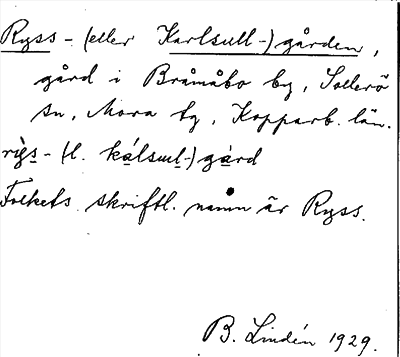 Ryss- (eller Karlsull-) gården,
gård i Bråmåbo by, Sollerö
sn, Mora tg, Kopparb. län.
rìs̱s- (l. kálsuḻḻ-) gård
Folkets skriftl. namn är Ryss.
B. Lindén 1929.